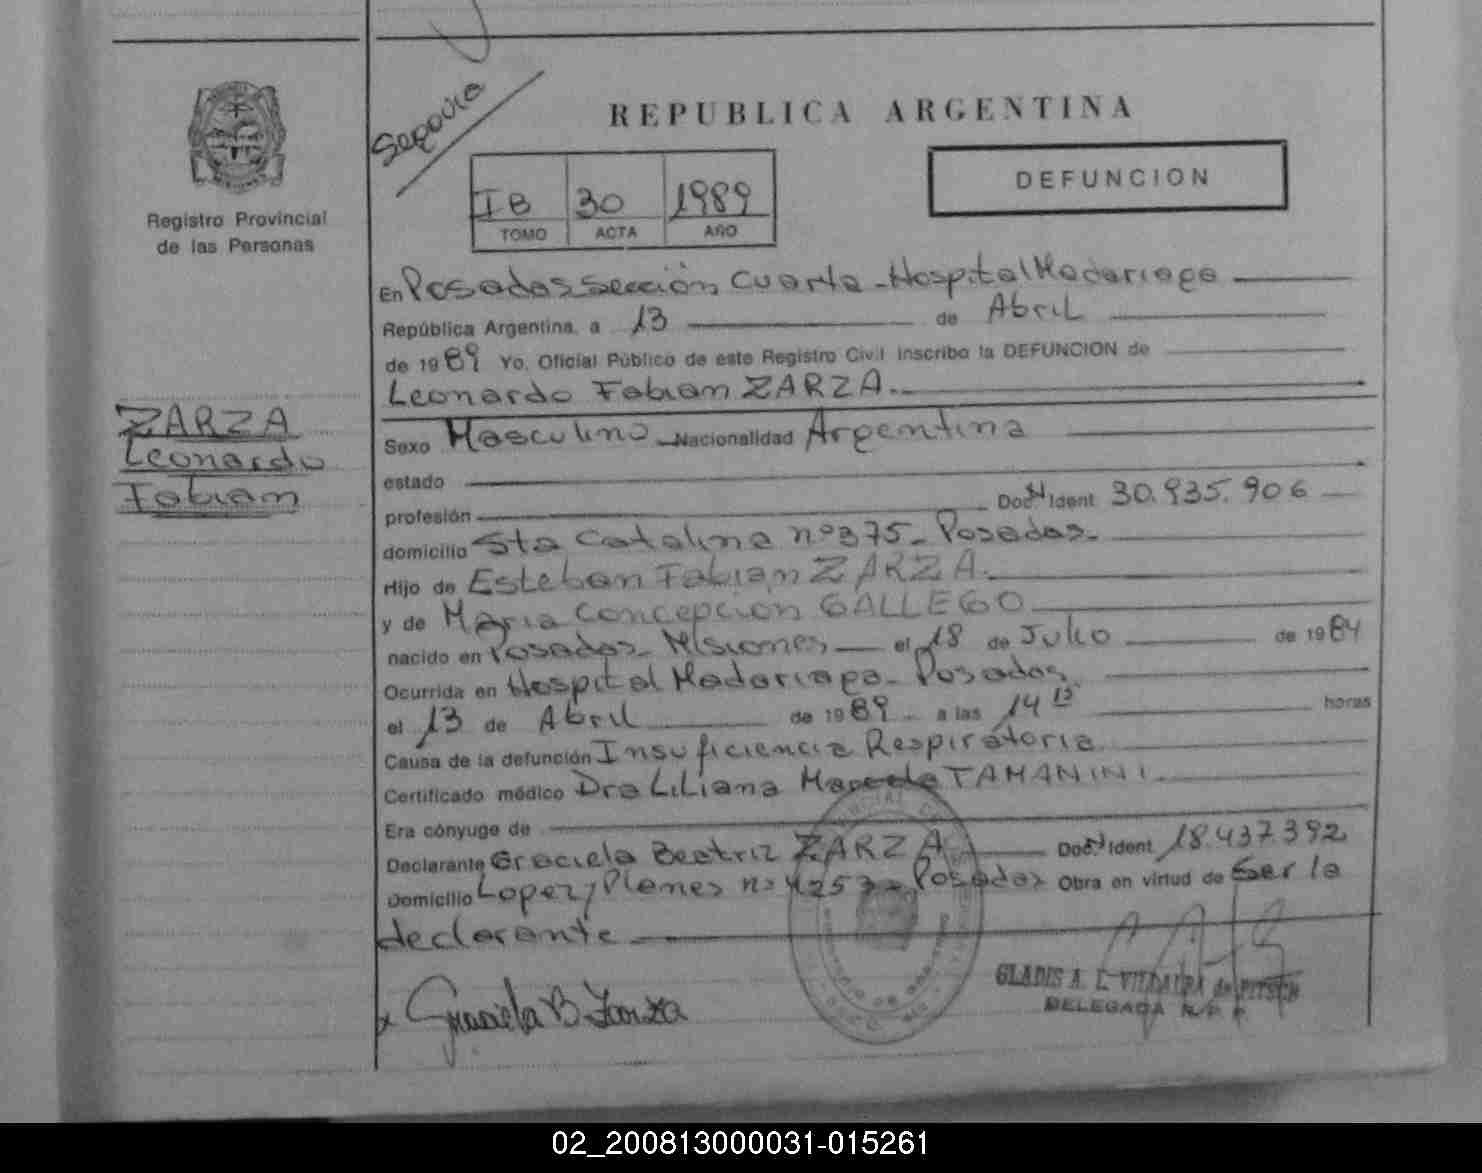 Segovia
REPUBLICA ARGENTINA
DEFUNCION
IB 30 1989
TOMO ACTA AÑO
Registro Provincial
de las Personas
En Posadas Sección Cuarta - Hospital Madariaga
República Argentina, a 13 de Abril
de 1989 Yo, Oficial Público de este Registro Civil inscribo la DEFUNCION de
Leonardo Fabian ZARZA.-
ZARZA
Leonardo
Fabian
Sexo Masculino Nacionalidad Argentina
estado
profesión Doc. N Ident. 30.935.906
domicilio Sta Catalina nº 375 - Posadas.-
Hijo de Esteban Fabian ZARZA.
y de Maria Concepcion GALLEGO
nacido en Posadas - Misiones el 18 de Julio de 1984
Ocurrida en Hospital Madariaga - Posadas
el 13 de Abril de 1989 a las 14 15 horas
Causa de la defunción Insuficiencia Respiratoria
Certificado médico Dra Liliana TAMANINI
Era cónyuge de
Declarante Graciela Beatriz ZARZA Doc. N Ident. 18.437.392
Domicilio Lopez y Planes nº 4253 - Posadas Obra en virtud de Ser la
declarante
Graciela B Zarza
GLADIS A. L. de PITSCH
DELEGADA R. P. P.
02_200813000031-015261